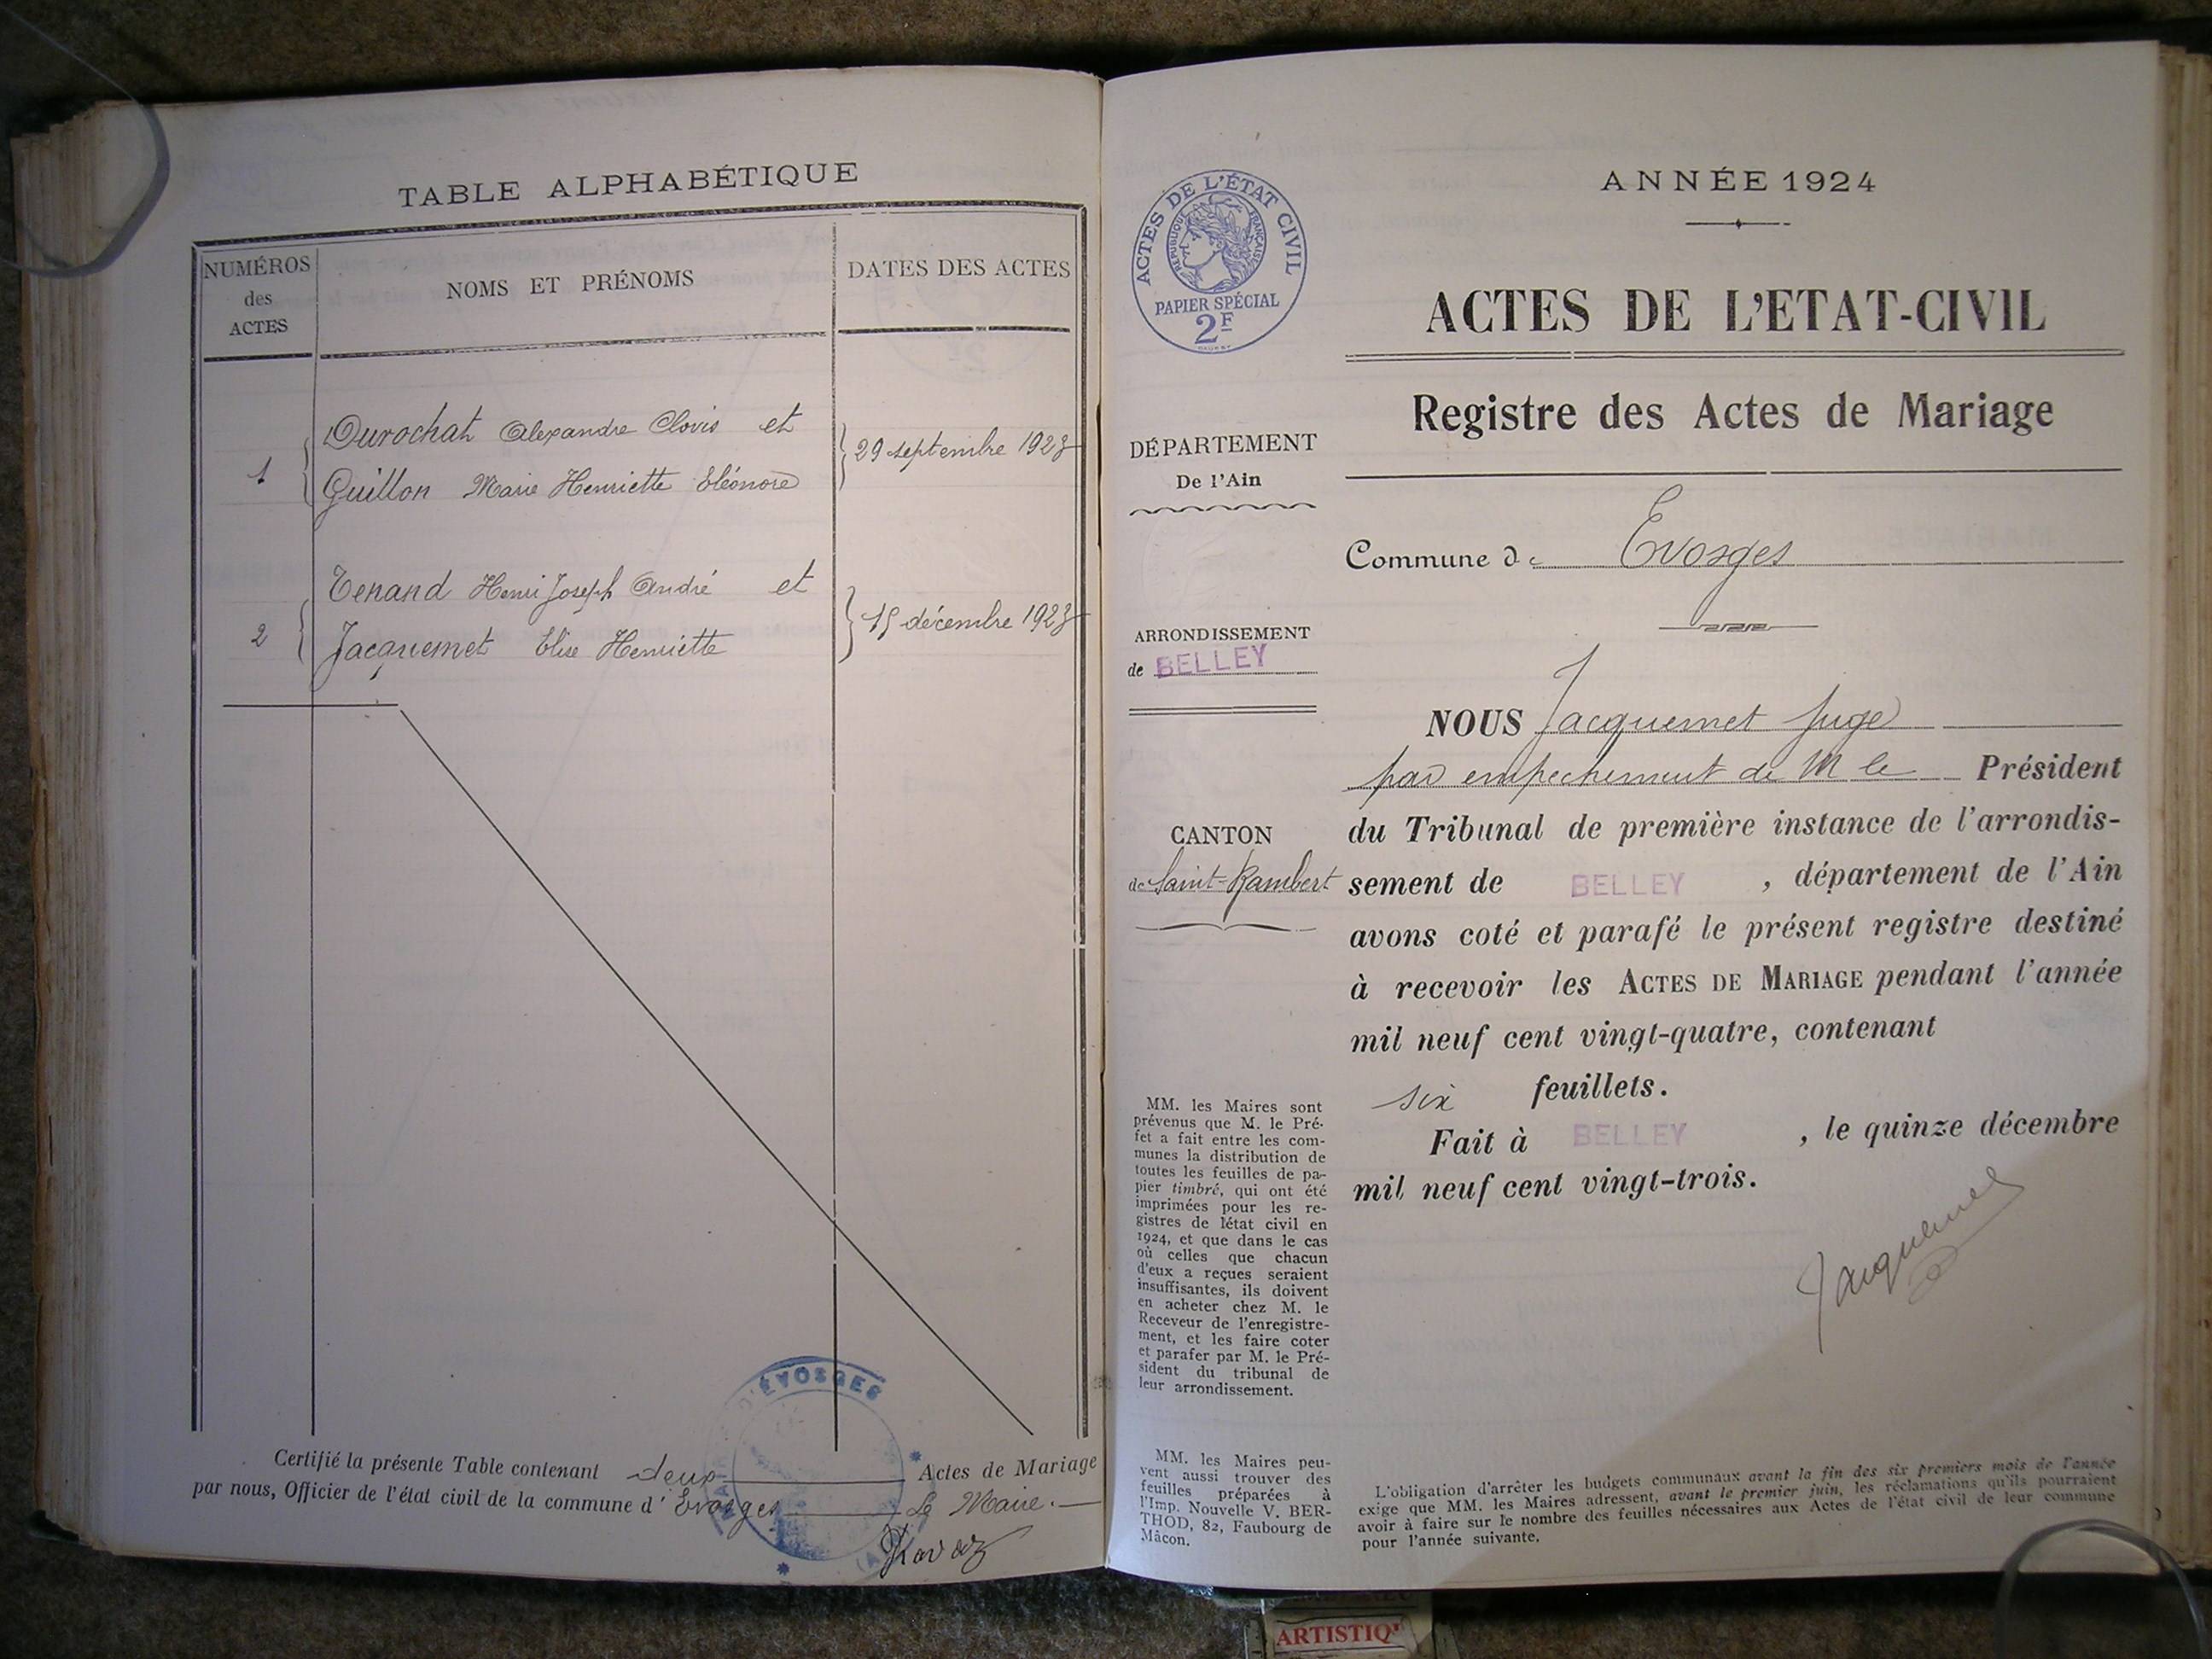 TABLE ALPHABÉTIQUE
NUMÉROS
des
ACTES
NOMS ET PRÉNOMS
DATES DES ACTES
1
Durochat Alexandre Clovis et
Guillon Marie Henriette Eléonore
29 septembre 1923
2
Tenand Henri Joseph André et
Jacquemet Elise Henriette
15 décembre 1923
Certifié la présente Table contenant deux Actes de Mariage
par nous, Officier de l'état civil de la commune d'Evosges Le Maire.
D'ÉVOSGES
ACTES DE L'ÉTAT CIVIL
RÉPUBLIQUE FRANÇAISE
PAPIER SPÉCIAL
2F
DÉPARTEMENT
De l'Ain
ARRONDISSEMENT
de BELLEY
CANTON
de Saint-Rambert
MM. les Maires sont
prévenus que M. le Pré-
fet a fait entre les com-
munes la distribution de
toutes les feuilles de pa-
pier timbré, qui ont été
imprimées pour les re-
gistres de létat civil en
1924, et que dans le cas
où celles que chacun
d'eux a reçues seraient
insuffisantes, ils doivent
en acheter chez M. le
Receveur de l'enregistre-
ment, et les faire coter
et parafer par M. le Pré-
sident du tribunal de
leur arrondissement.
MM. les Maires peu-
vent aussi trouver des
feuilles préparées à
l'Imp. Nouvelle V. BER-
THOD, 82, Faubourg de
Mâcon.
ANNÉE 1924
ACTES DE L'ETAT-CIVIL
Registre des Actes de Mariage
Commune de Evosges
NOUS Jacquemet Juge
par empechement de M le Président
du Tribunal de première instance de l'arrondis-
sement de BELLEY, département de l'Ain
avons coté et parafé le présent registre destiné
à recevoir les ACTES DE MARIAGE pendant l'année
mil neuf cent vingt-quatre, contenant
six feuillets.
Fait à BELLEY, le quinze décembre
mil neuf cent vingt-trois.
Jacquemet
L'obligation d'arrêter les budgets communaux avant la fin des six premiers mois de l'année
exige que MM. les Maires adressent, avant le premier juin, les réclamations qu'ils pourraient
avoir à faire sur le nombre des feuilles nécessaires aux Actes de l'état civil de leur commune
pour l'année suivante.
ARTISTIQ